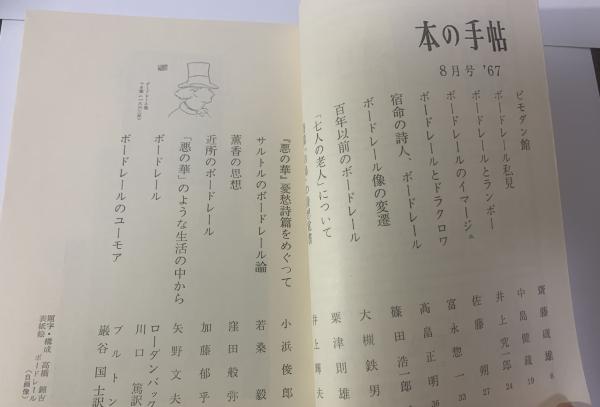 本の手帖
8月号 '67
ビモダン館 齋藤磯雄 8
ボードレール私見 中島健蔵 19
ボードレールとランボー 井上究一郎 24
ボードレールのイマージュ 佐藤 朔 27
ボードレールとドラクロワ 富永惣一 33
宿命の詩人、ボードレール 高畠正明 36
ボードレール像の変遷 篠田浩一郎
百年以前のボードレール 大槻鉄男
「七人の老人」について 粟津則雄
『悪の華』憂愁詩篇をめぐって 小浜俊郎
サルトルのボードレール論 若桑 毅
薫香の思想 窪田般弥
近所のボードレール 加藤郁乎
「悪の華」のような生活の中から 矢野文夫
ボードレール ローダンバック 川口 篤訳
ボードレールのユーモア ブルトン 巖谷国士訳
題字・構成 高橋錦吉
表紙絵 ボードレール(自画像)